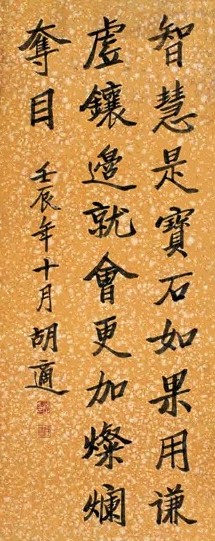 智慧是寶石如果用谦
虚鑲邊就會更加燦爛
奪目
壬辰年十月胡適